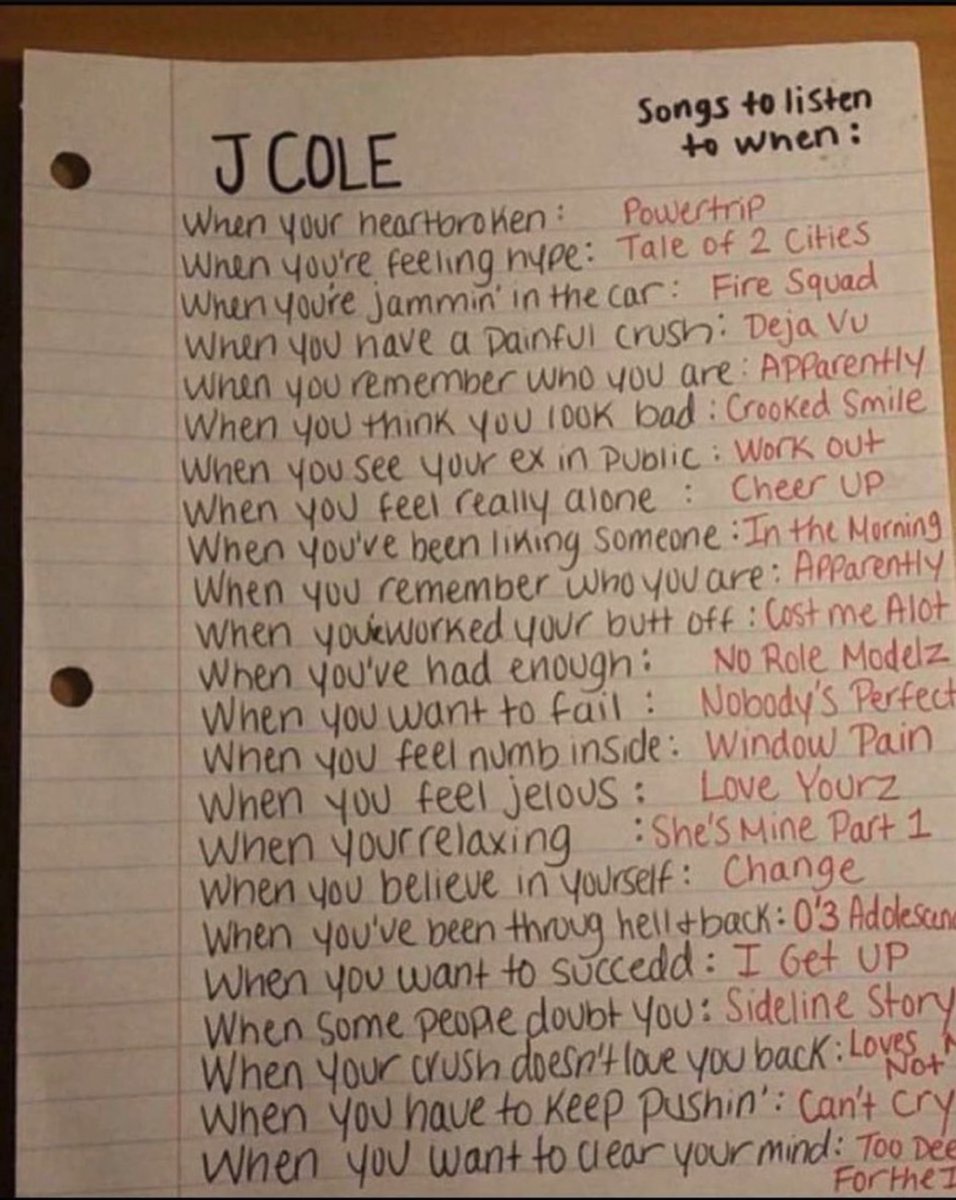 Songs to listen
to when:
J COLE
When your heartbroken: Powertrip
When you're feeling hype: Tale of 2 Cities
When you're jammin' in the car: Fire Squad
When you have a painful crush: Deja Vu
When you remember who you are: Apparently
When you think you look bad: Crooked Smile
When you see your ex in public: Work out
When you feel really alone: Cheer UP
When you've been liking someone: In the Morning
When you remember who you are: Apparently
When you've worked your butt off: Cost me Alot
When you've had enough: No Role Modelz
When you want to fail: Nobody's Perfect
When you feel numb inside: Window Pain
When you feel jelous: Love Yourz
When your relaxing: She's Mine Part 1
When you believe in yourself: Change
When you've been throug hell + back: 0'3 Adolescen
When you want to succedd: I Get UP
When some people doubt you: Sideline Story
When your crush doesn't love you back: Loves
Not
When you have to keep pushin': Can't Cry
When you want to clear your mind: Too Dee
For the I